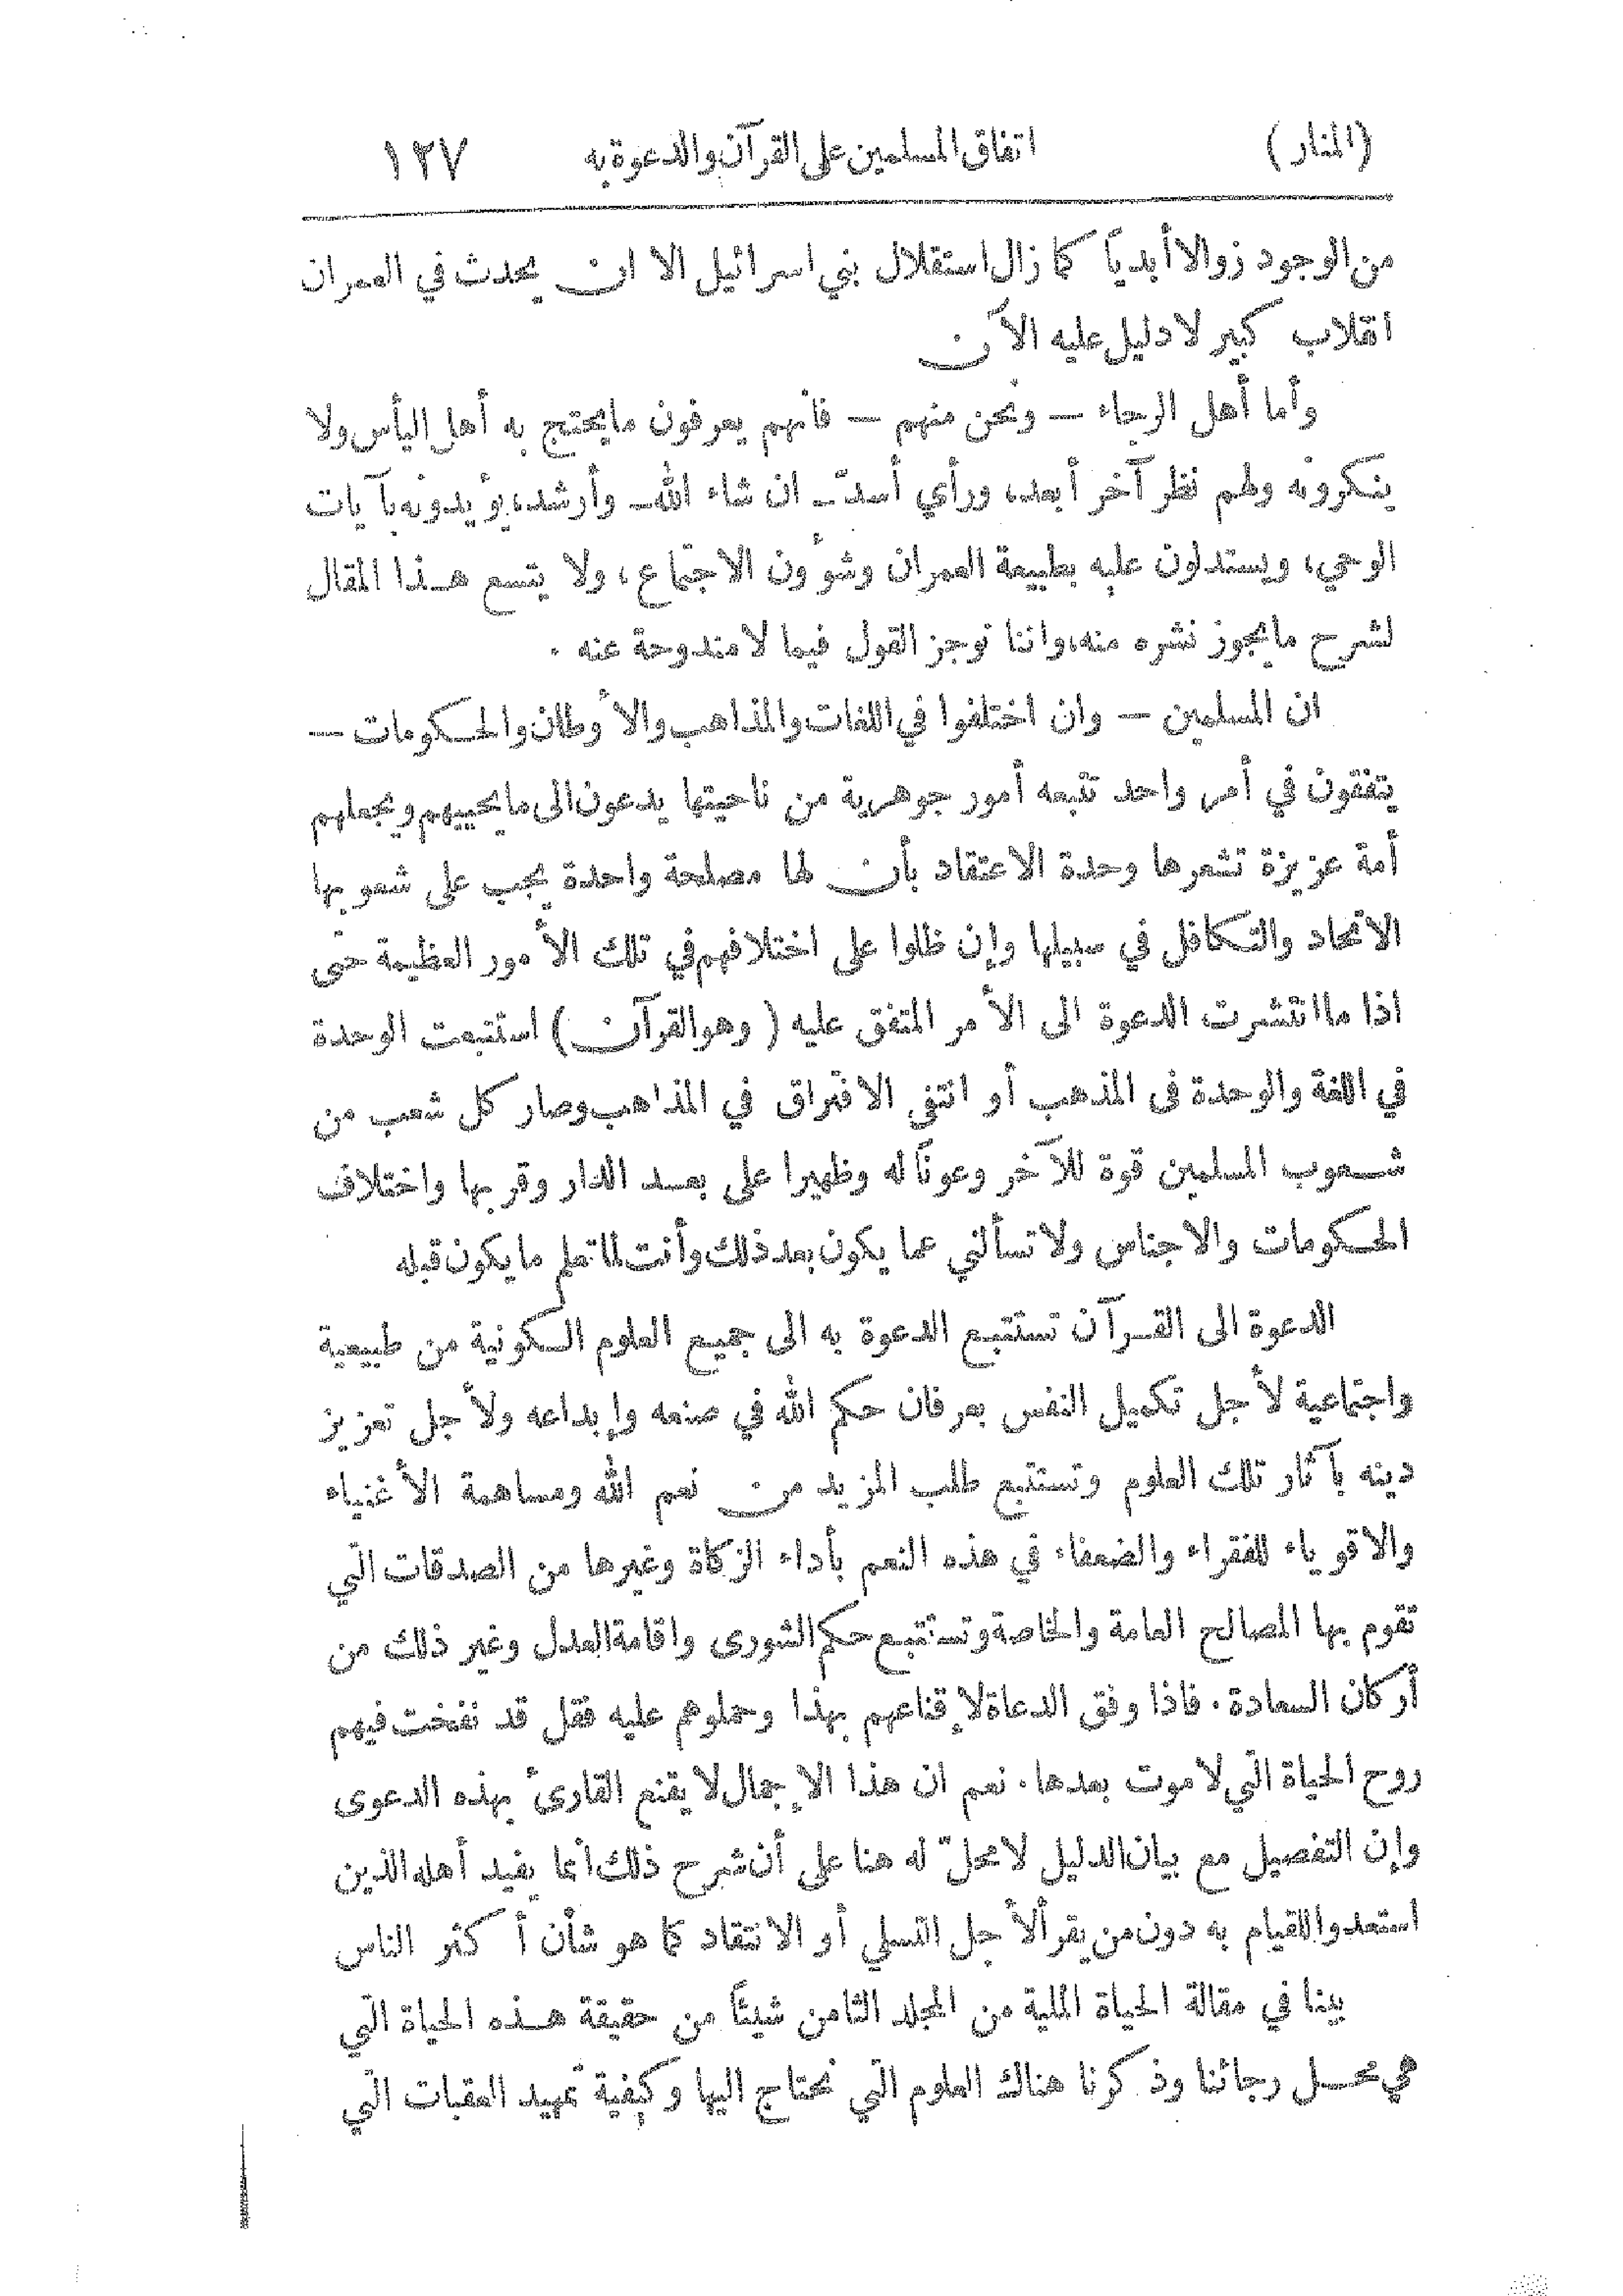 (المنار) اتفاق المسلمين على القرآن والدعوة به ١٢٧
من الوجود زوالا أبديّا كما زال استقلال بني اسرائيل الا ان يحدث في العمران
انقلاب كبير لا دليل عليه الآن
وأما أهل الرجاء — ونحن منهم — فانهم يعرفون ما يحتج به أهل اليأس ولا
ينكرونه ولهم نظر آخر أبعد، ورأي أسدّ ـ ان شاء الله ـ وأرشد، يؤيدونه بآيات
الوحي، ويستدلون عليه بطبيعة العمران وشؤون الاجتماع، ولا يتسع هذا المقال
لشرح ما يجوز نشره منه، واننا نوجز القول فيما لا مندوحة عنه .
ان المسلمين — وان اختلفوا في اللغات والمذاهب والأوطان والحكومات —
يتفقون في أمر واحد تتبعه أمور جوهرية من ناحيتها يدعون الى ما يحييهم ويجعلهم
أمة عزيزة تشعرها وحدة الاعتقاد بأن لها مصلحة واحدة يجب على شعوبها
الاتحاد والتكافل في سبيلها وإن ظلوا على اختلافهم في تلك الأمور العظيمة حتى
اذا ما انتشرت الدعوة الى الأمر المتفق عليه ( وهو القرآن ) استتبعت الوحدة
في اللغة والوحدة فى المذهب أو انتفى الافتراق في المذاهب وصار كل شعب من
شعوب المسلمين قوة للآخر وعونًا له وظهيرا على بعد الدار وقربها واختلاف
الحكومات والاجناس ولا تسألني عما يكون بعد ذلك وأنت لما تعلم ما يكون قبله
الدعوة الى القرآن تستتبع الدعوة به الى جميع العلوم الكونية من طبيعية
واجتماعية لأجل تكميل النفس بعرفان حكم الله في صنعه وإبداعه ولأجل تعزيز
دينه بآثار تلك العلوم وتستتبع طلب المزيد من نعم الله ومساهمة الأغنياء
والاقوياء للفقراء والضعفاء في هذه النعم بأداء الزكاة وغيرها من الصدقات التي
تقوم بها المصالح العامة والخاصة وتستتبع حكم الشورى واقامة العدل وغير ذلك من
أركان السعادة . فاذا وفق الدعاة لإقناعهم بهذا وحملوهم عليه فقل قد نفخت فيهم
روح الحياة التي لا موت بعدها . نعم ان هذا الإجمال لا يقنع القارئ بهذه الدعوى
وإن التفصيل مع بيان الدليل لا محلّ له هنا على أن شرح ذلك انما يفيد أهله الذين
استعدوا للقيام به دون من يقرأ لأجل التسلي أو الانتقاد كما هو شأن أكثر الناس
بينا في مقالة الحياة الملية من المجلد الثامن شيئًا من حقيقة هذه الحياة التي
هي محل رجائنا وذكرنا هناك العلوم التي نحتاج اليها وكيفية تمهيد العقبات التي